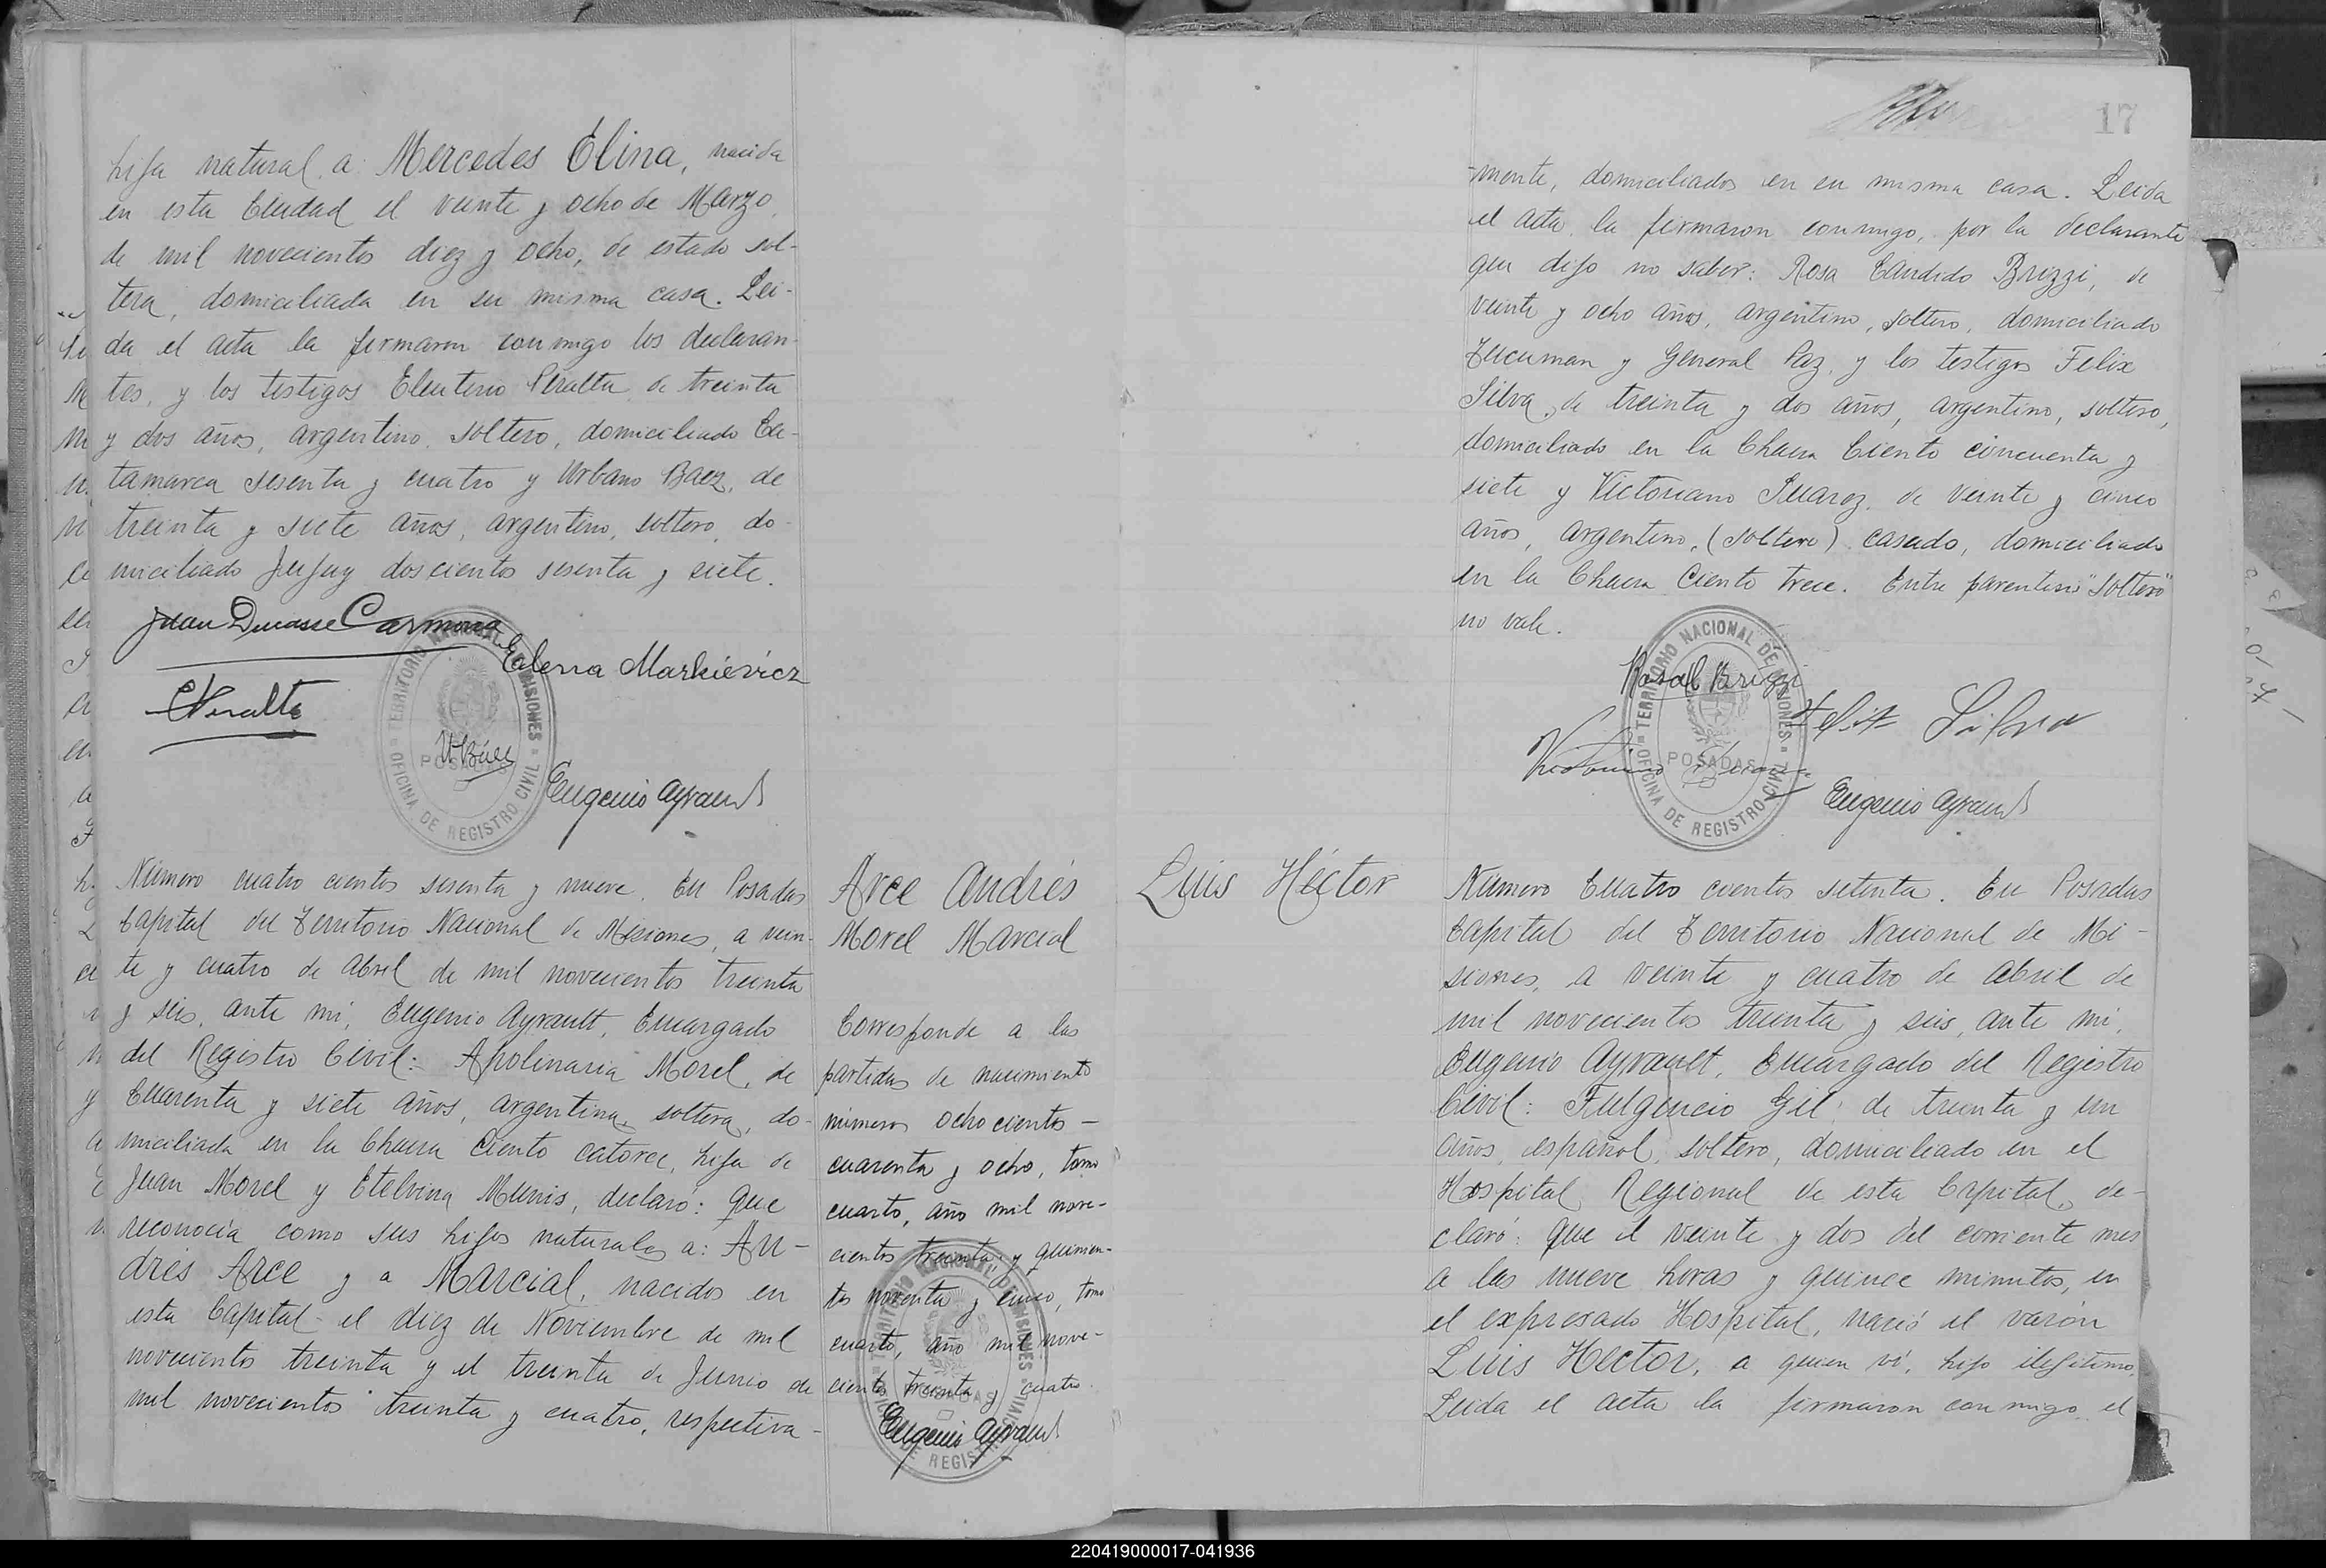 hija natural a Mercedes Elina, nacida
en esta Ciudad el veinte y ocho de Marzo
de mil novecientos diez y ocho, de estado sol-
tera, domiciliada en su misma casa. Lei-
da el acta la firmaron conmigo los declaran-
tes, y los testigos Eleuterio Peralta de treinta
y dos años, argentino, soltero, domiciliado Ca-
tamarca sesenta y cuatro y Urbano Baez, de
treinta y siete años, argentino, soltero, do-
miciliado Jujuy doscientos sesenta y siete.
Juan Ducasse Carmona
Elena Markievicz
EPeralta
UBáez
Eugenio Ayrault
TERRITORIO NACIONAL DE MISIONES
POSADAS
OFICINA DE REGISTRO CIVIL
Número cuatro cientos sesenta y nueve. En Posadas
Capital del Territorio Nacional de Misiones, a vein-
te y cuatro de Abril de mil novecientos treinta
y seis, ante mi, Eugenio Ayrault, Encargado
del Registro Civil: Apolinaria Morel, de
cuarenta y siete años, argentina, soltera, do-
miciliada en la Chacra Ciento catorce, hija de
Juan Morel y Etelvina Munis, declaró: que
reconocía como sus hijos naturales a: An-
drés Arce y a Marcial, nacidos en
esta Capital el diez de Noviembre de mil
novecientos treinta y el treinta de Junio de
mil novecientos treinta y cuatro, respectiva-
Arce Andrés
Morel Marcial
Corresponde a las
partidas de nacimiento
números ochocientos -
cuarenta y ocho, tomo
cuarto, año mil nove-
cientos treinta; y quinien-
tos noventa y cinco, tomo
cuarto, año mil nove-
cientos treinta y cuatro.
Eugenio Ayrault
17
-mente, domiciliados en su misma casa. Leida
el acta, la firmaron conmigo, por la declarante
que dijo no saber: Rosa Candido Brizzi, de
veinte y ocho años, argentino, soltero, domiciliado
Tucuman y General Paz, y los testigos Felix
Silva, de treinta y dos años, argentino, soltero,
domiciliado en la Chacra Ciento cincuenta y
siete y Victoriano Suarez, de veinte y cinco
años, argentino, (soltero) casado, domiciliado
en la Chacra Ciento trece. Entre parentesis "soltero"
no vale.
Rosa C Brizzi
Felix Silva
Eugenio Ayrault
TERRITORIO NACIONAL DE MISIONES
POSADAS
OFICINA DE REGISTRO CIVIL
Luis Héctor
Número Cuatro cientos setenta. En Posadas
Capital del Territorio Nacional de Mi-
siones, a veinte y cuatro de Abril de
mil novecientos treinta y seis, ante mi,
Eugenio Ayrault, Encargado del Registro
Civil: Fulgencio Gil, de treinta y un
años, español, soltero, domiciliado en el
Hospital Regional de esta Capital, de-
claró: que el veinte y dos del corriente mes
a las nueve horas y quince minutos, en
el expresado Hospital, nació el varón
Luis Hector, a quien vi, hijo ilegítimo.
Leida el acta la firmaron conmigo el
220419000017-041936